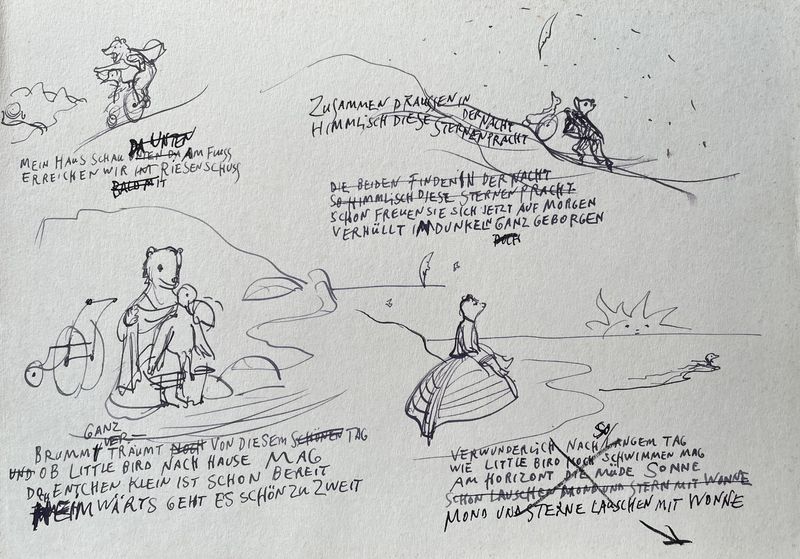 MEIN HAUS SCHAU DA UNTEN AM FLUSS
ERREICHEN WIR MIT RIESENSCHUSS
BALD MIT
ZUSAMMEN DRAUSSEN IN DER NACHT
HIMMLISCH DIESE STERNENPRACHT
DIE BEIDEN FINDEN IN DER NACHT
SO HIMMLISCH DIESE STERNENPRACHT
SCHON FREUEN SIE SICH JETZT AUF MORGEN
VERHÜLLT IM DUNKELN GANZ GEBORGEN
DOCH
GANZ
VER-
BRUMMT TRÄUMT NOCH VON DIESEM SCHÖNEN TAG
UND OB LITTLE BIRD NACH HAUSE MAG
DOCH ENTCHEN KLEIN IST SCHON BEREIT
HEIMWÄRTS GEHT ES SCHÖN ZU ZWEIT
SO
VERWUNDERLICH NACH LANGEM TAG
WIE LITTLE BIRD NOCH SCHWIMMEN MAG
AM HORIZONT DIE MÜDE SONNE
SCHON LAUSCHEN MOND UND STERN MIT WONNE
MOND UND STERNE LAUSCHEN MIT WONNE